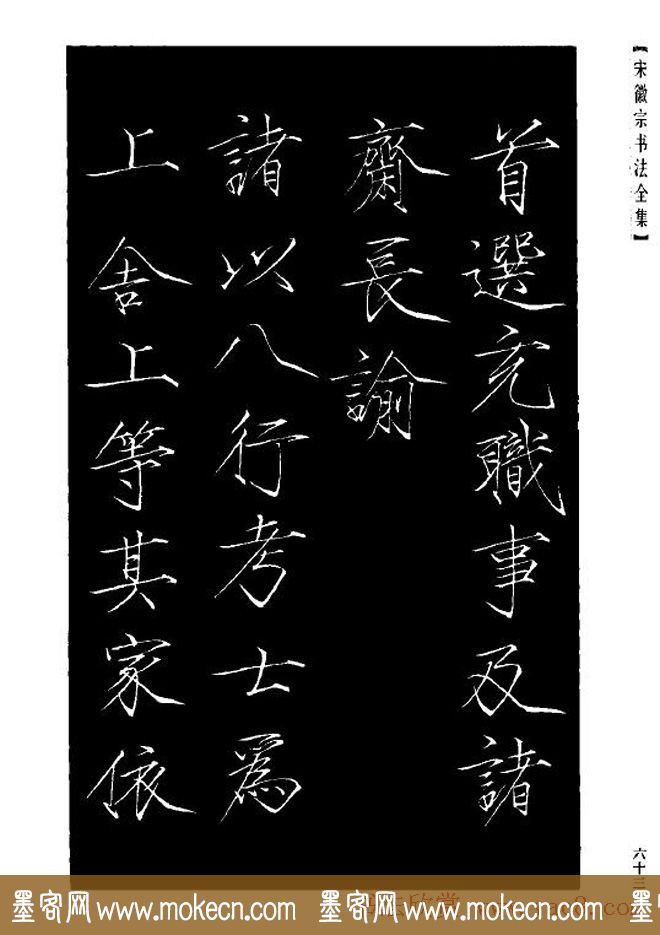 【宋徽宗书法全集】
首選充職事及諸
齋長諭
諸以八行考士為
上舍上等其家依
六十三
墨客网 www.mokecn.com 墨客网 www.mokecn.com 墨客网